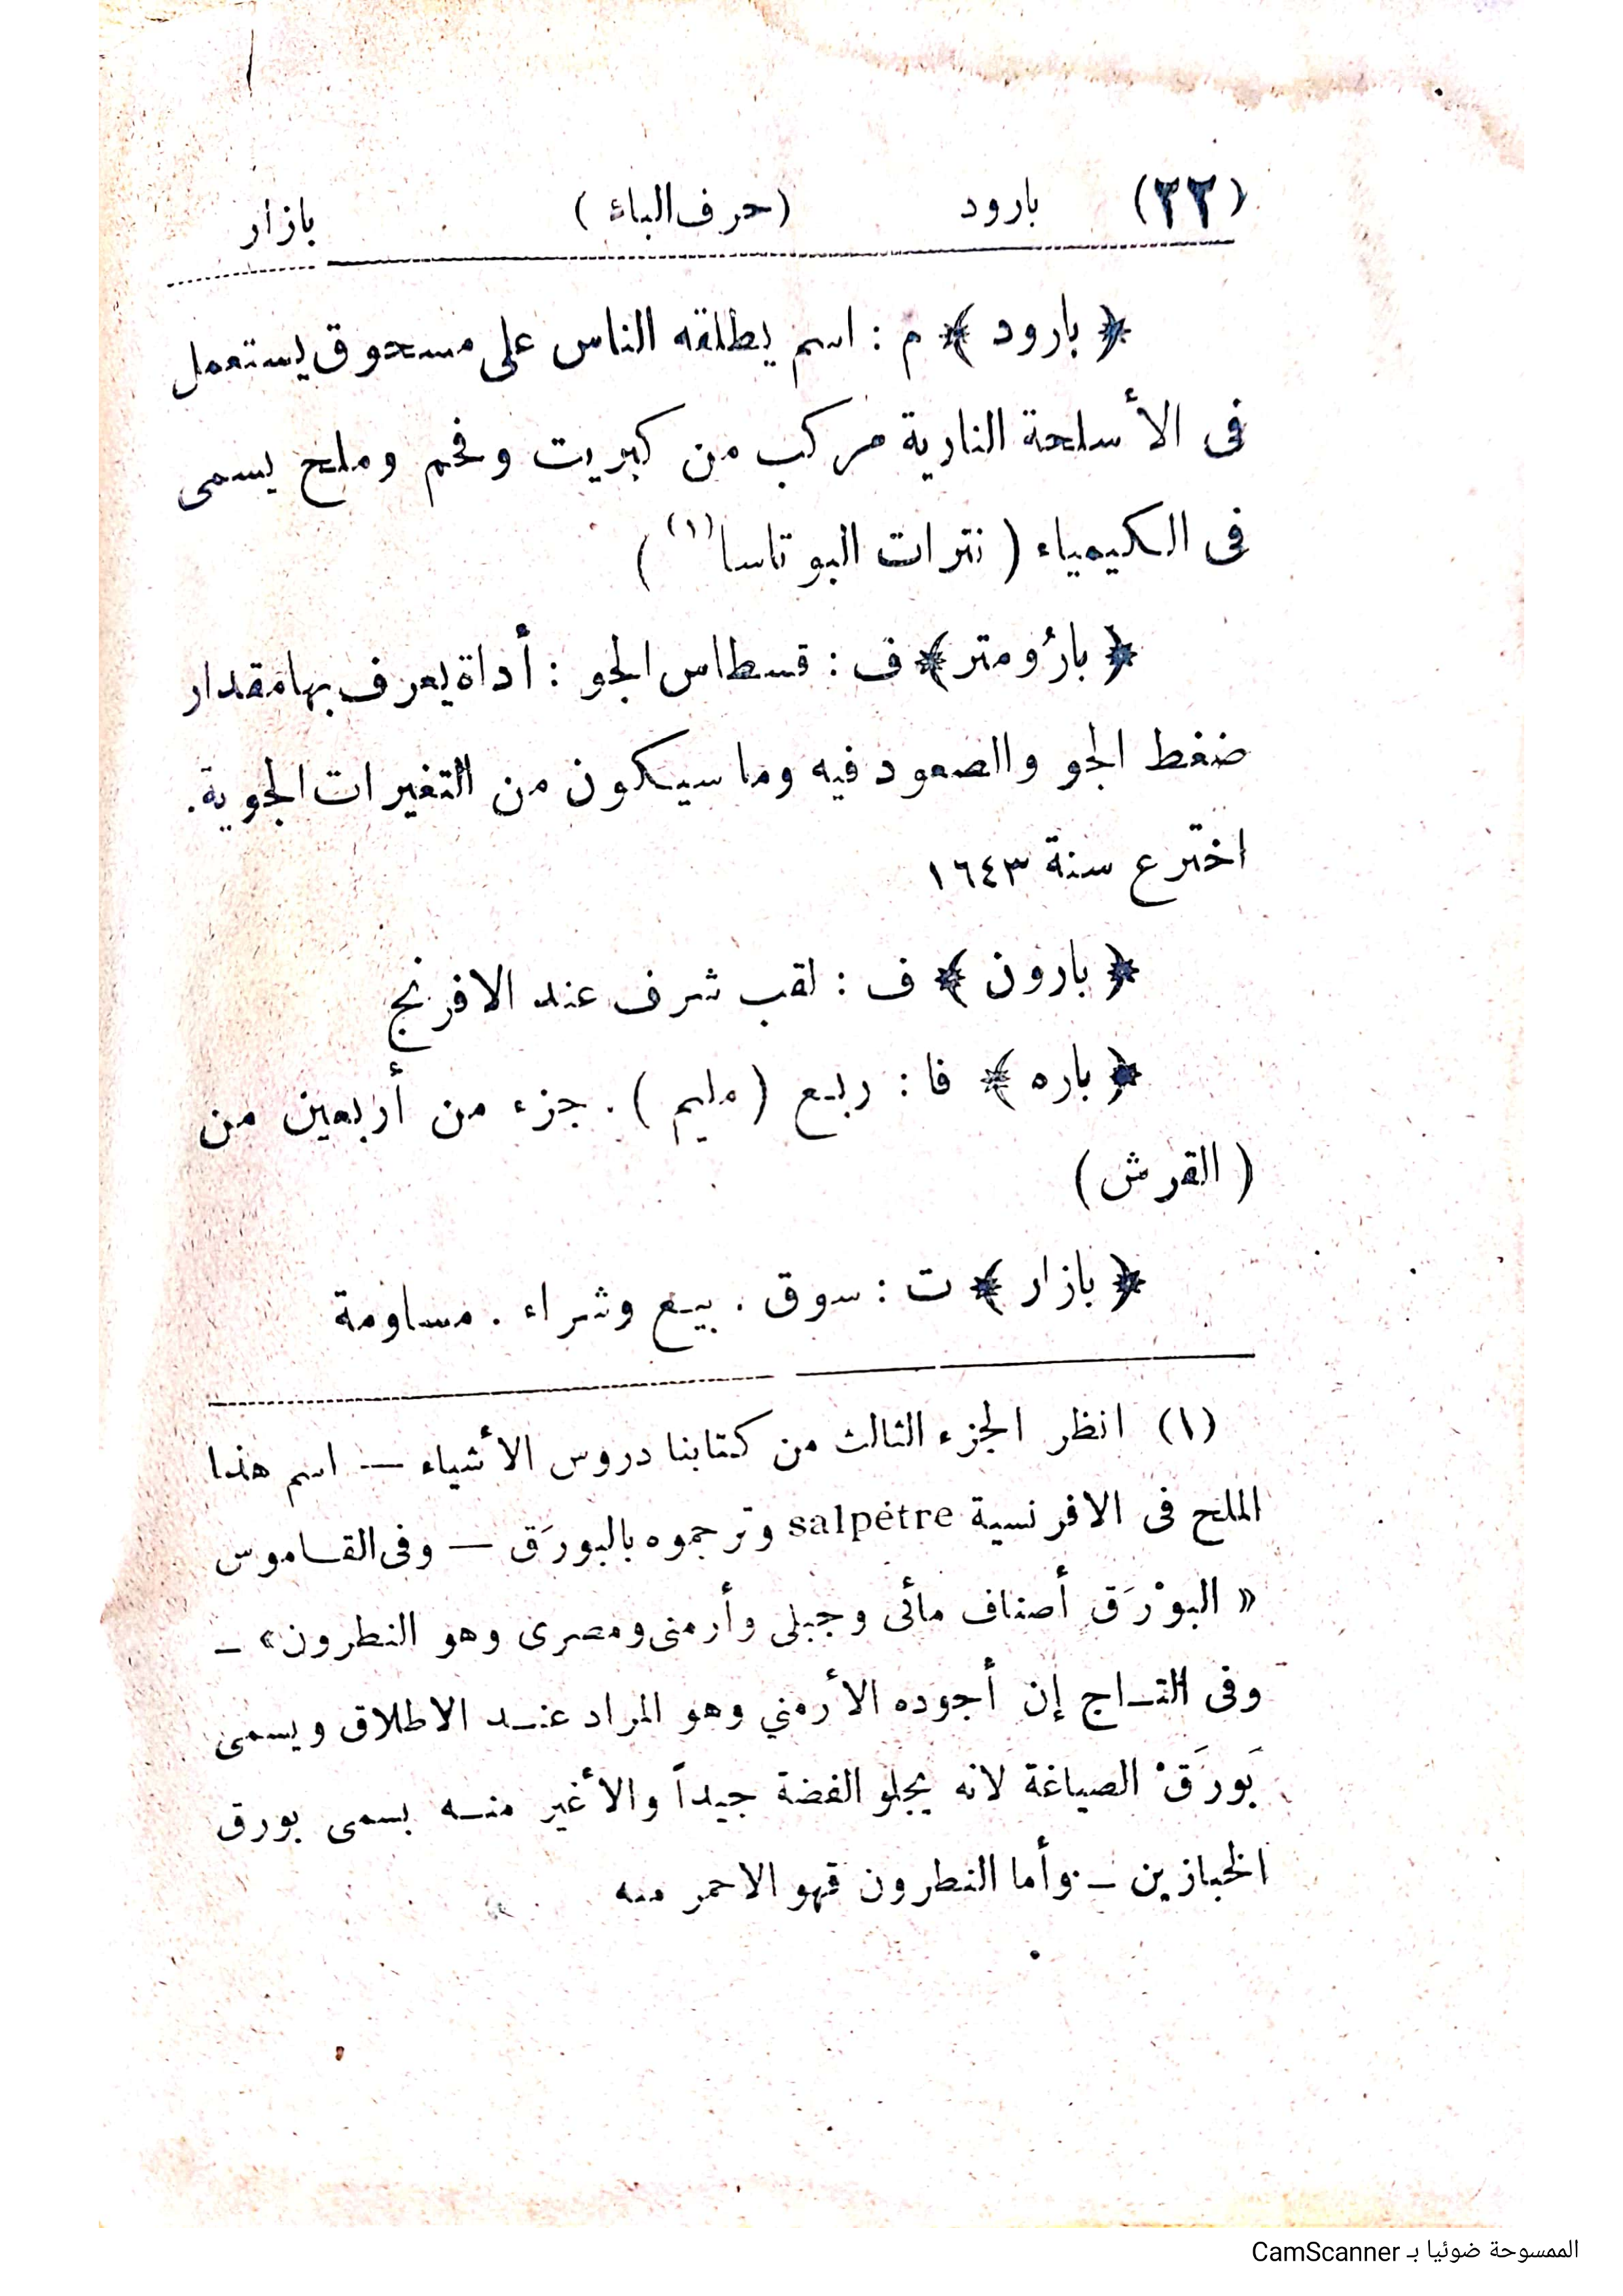 (٢٢) بارود (حرف الباء) بازار
﴿ بارود ﴾ م : اسم يطلقه الناس على مسحوق يستعمل
فى الأسلحة النارية مركب من كبريت وفحم وملح يسمى
فى الكيمياء ( نترات البوتاسا (١) )
﴿ بارُومتر ﴾ ف : قسطاس الجو : أداة يعرف بها مقدار
ضغط الجو والصعود فيه وما سيكون من التغيرات الجوية.
اخترع سنة ١٦٤٣
﴿ بارون ﴾ ف : لقب شرف عند الافرنج
﴿ باره ﴾ فا : ربع ( مليم ) . جزء من أربعين من
( القرش )
﴿ بازار ﴾ ت : سوق . بيع وشراء . مساومة
(١) انظر الجزء الثالث من كتابنا دروس الأشياء — اسم هذا
الملح فى الافرنسية salpétre وترجموه بالبورَق — وفى القاموس
« البوْرَق أصناف مائى وجبلى وأرمنى ومصرى وهو النطرون» —
وفى التاج إن أجوده الأرمني وهو المراد عند الاطلاق ويسمى
بَورَقْ الصياغة لانه يجلو الفضة جيداً والأغير منه يسمى بورق
الخبازين — وأما النطرون فهو الاحمر منه
الممسوحة ضوئيا بـ CamScanner